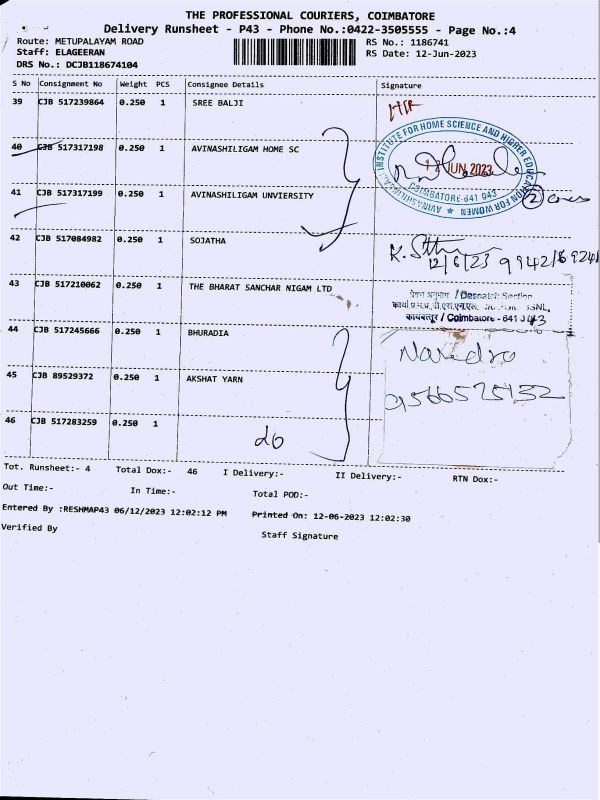 THE PROFESSIONAL COURIERS, COIMBATORE
Delivery Runsheet - P43 - Phone No.:0422-3505555 - Page No.:4
Route: METUPALAYAM ROAD
RS No.: 1186741
Staff: ELAGEERAN
RS Date: 12-Jun-2023
DRS No.: DCJB118674104
S No Consignment No Weight PCS Consignee Details Signature
39 CJB 517239864 0.250 1 SREE BALJI
40 CJB 517317198 0.250 1 AVINASHILIGAM HOME SC
INSTITUTE FOR HOME SCIENCE AND HIGHER EDUCATION FOR WOMEN
12 JUN 2023
COIMBATORE-641 043
41 CJB 517317199 0.250 1 AVINASHILIGAM UNVIERSITY
2
42 CJB 517084982 0.250 1 SOJATHA
12/6/23
43 CJB 517210062 0.250 1 THE BHARAT SANCHAR NIGAM LTD
/ Despatch Section
BSNL,
/ Coimbatore - 641 043
44 CJB 517245666 0.250 1 BHURADIA
45 CJB 89529372 0.250 1 AKSHAT YARN
46 CJB 517283259 0.250 1
do
Tot. Runsheet:- 4 Total Dox:- 46 I Delivery:- II Delivery:- RTN Dox:-
Out Time:- In Time:- Total POD:-
Entered By :RESHMAP43 06/12/2023 12:02:12 PM Printed On: 12-06-2023 12:02:30
Verified By Staff Signature